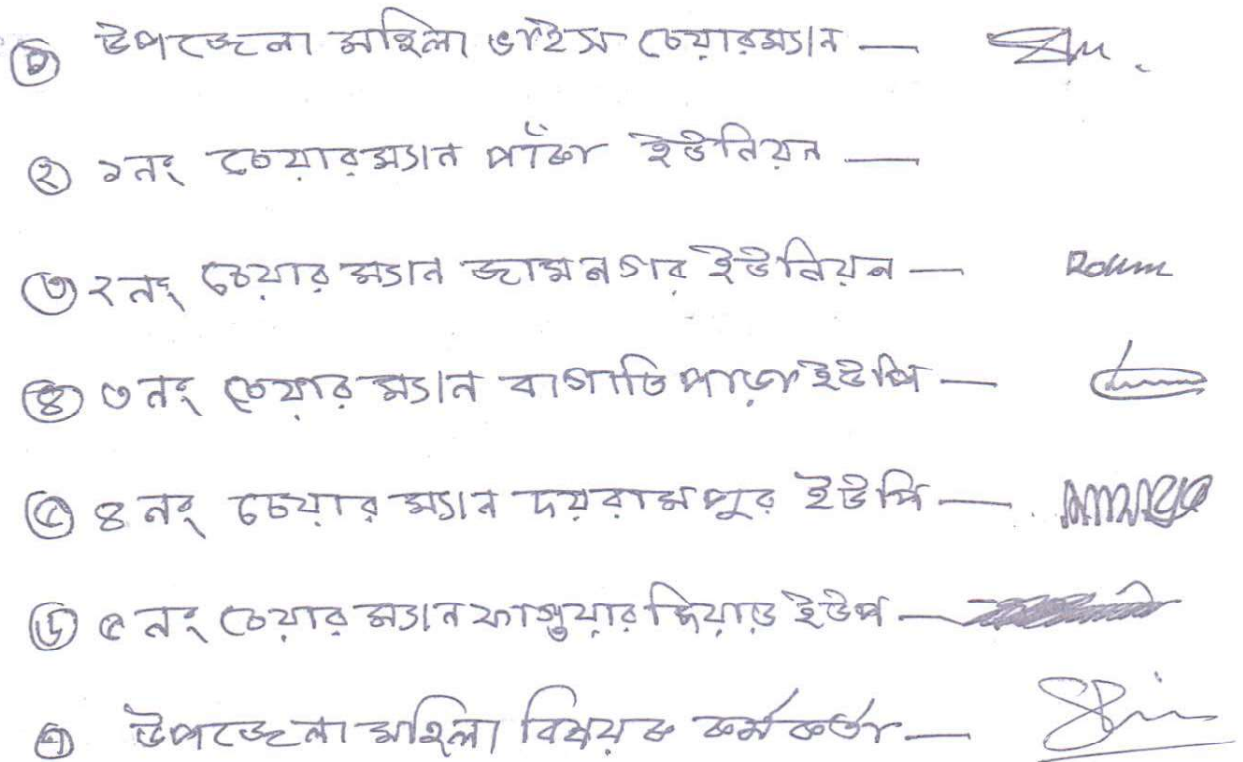 ① উপজেলা মহিলা ভাইস চেয়ারম্যান —
② ১নং চেয়ারম্যান পাঁকা ইউনিয়ন —
③ ২নং চেয়ারম্যান জামনগর ইউনিয়ন — Rohim
④ ৩নং চেয়ারম্যান বাগাতিপাড়া ইউপি —
⑤ ৪নং চেয়ারম্যান দয়রামপুর ইউপি —
⑥ ৫নং চেয়ারম্যান ফাগুয়ারদিয়াড় ইউপ —
⑦ উপজেলা মহিলা বিষয়ক কর্মকর্তা —